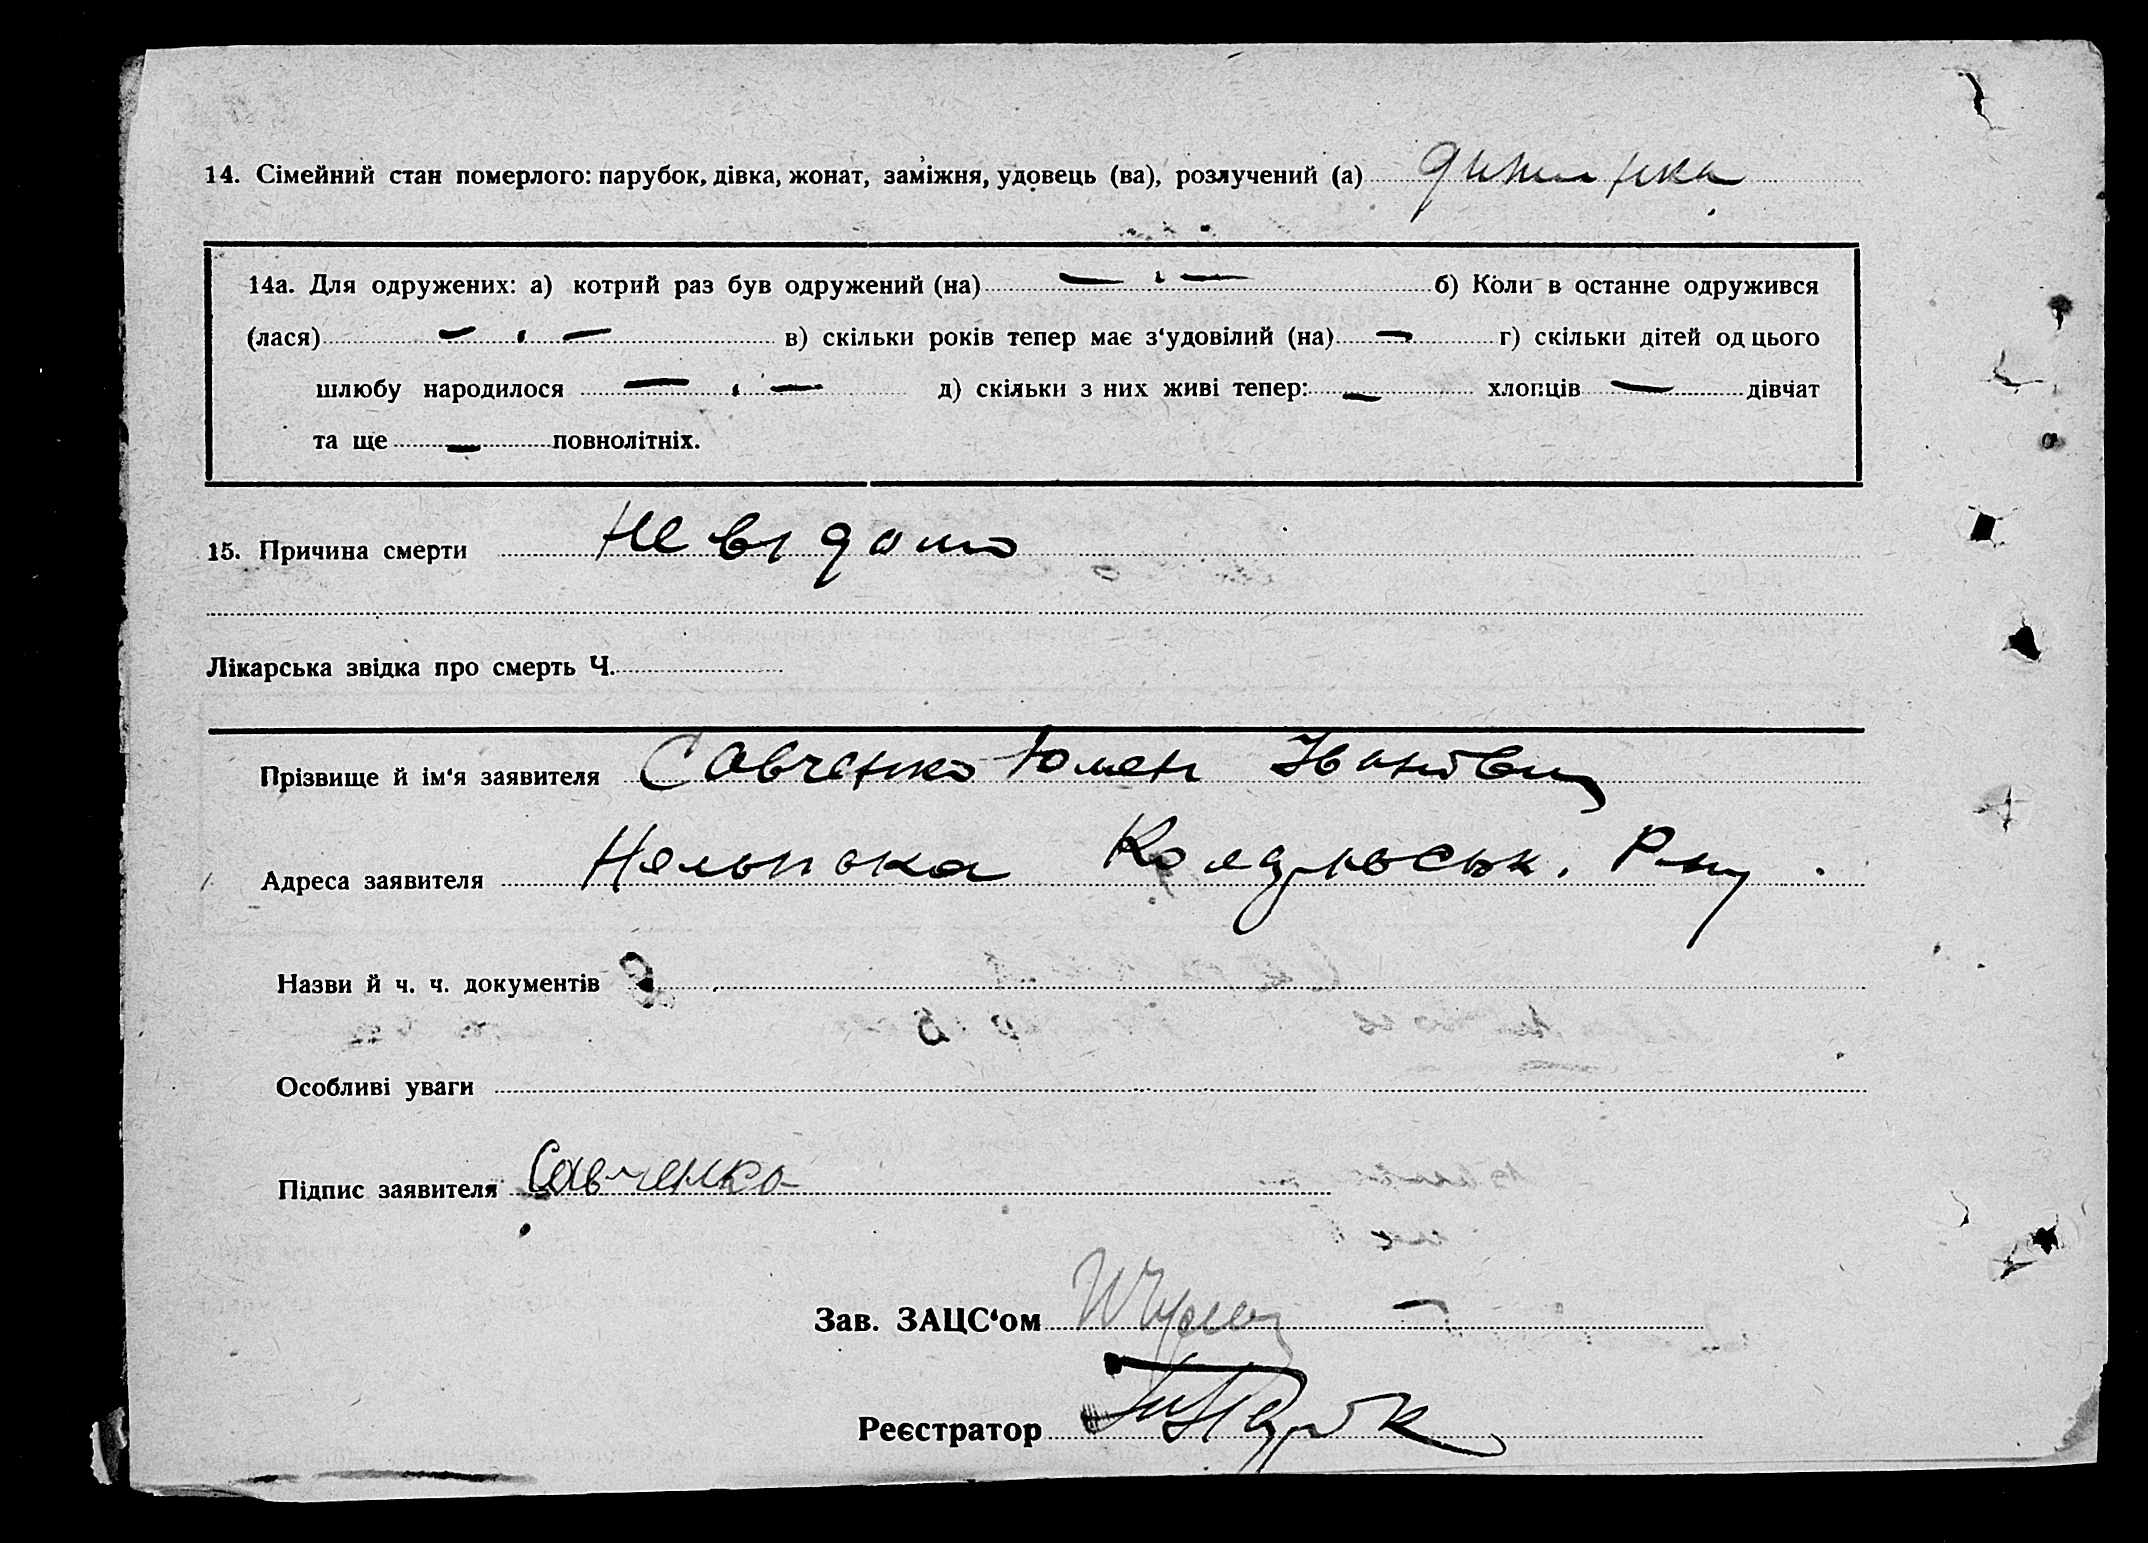 14. Сімейний стан померлого: парубок, дівка, жонат, заміжня, удовець (ва), розлучений (а) дитинка
14а. Для одружених: а) котрий раз був одружений (на) — „ — б) Коли в останне одружився
(лася) — „ — в) скільки років тепер має з‘удовілий (на) — г) скільки дітей од цього
шлюбу народилося — „ — д) скільки з них живі тепер: — хлопців — дівчат
та ще — повнолітніх.
15. Причина смерти Невідомо
Лікарська звідка про смерть Ч.
Прізвище й ім‘я заявителя Савченко Юмен Іванович
Адреса заявителя Нельипока
Назви й ч. ч. документів
Особливі уваги
Підпис заявителя Савченко
Зав. ЗАЦС‘ом
Реєстратор